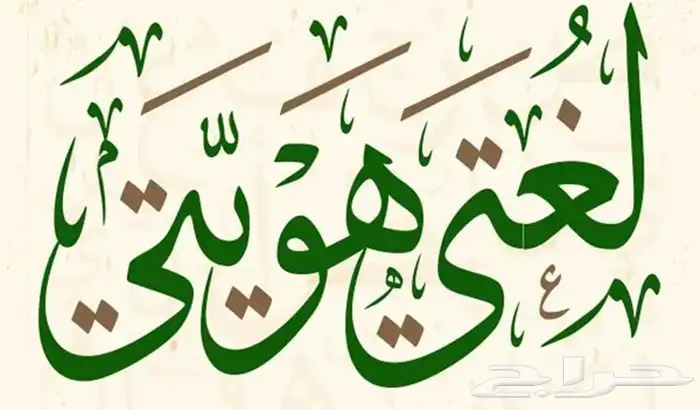 لُغتي هْويّتي
حراج